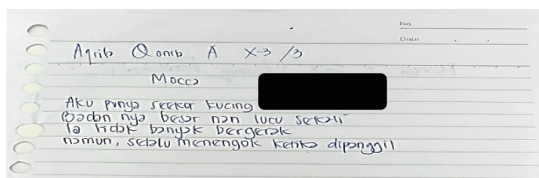 No
Date
Aqrib Qonib A X-3 /3
Mocca
Aku punya seekor kucing
Badan nya besar nan lucu sekali
Ia tidak banyak bergerak
namun, selalu menengok ketika dipanggil